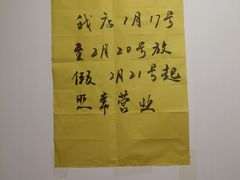 我店1月17号
至2月20号放
假 2月21号起
照常营业